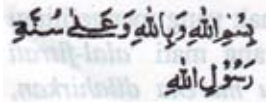 بِسْمِ اللهِ وَبِاللهِ وَعَلَى سُنَّةِ
رَسُوْلِ اللهِ